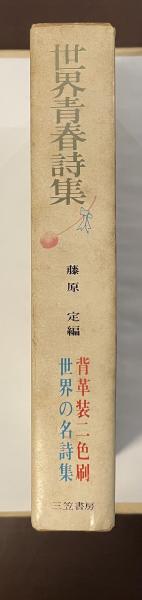 世界青春詩集
藤原 定編
背革装二色刷
世界の名詩集
三笠書房